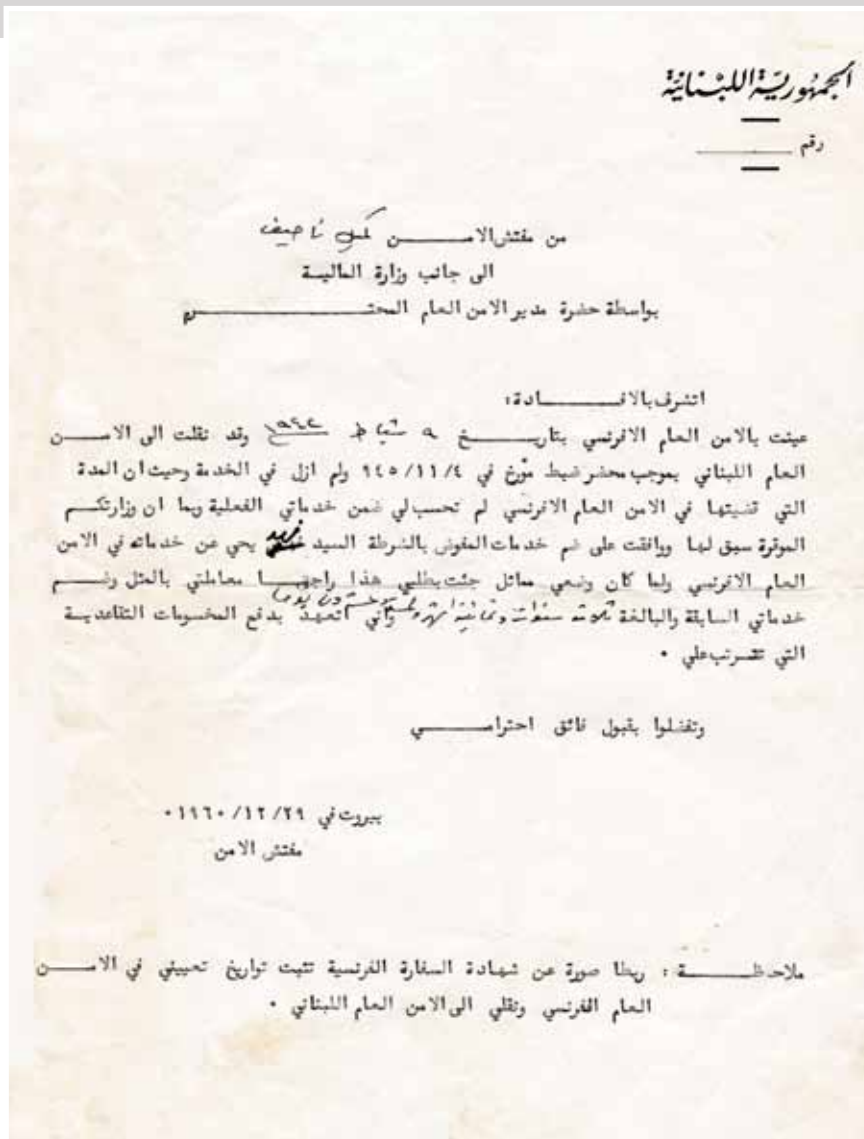 الجمهورية اللبنانية
رقم
من مفتش الامن ناصيف
الى جانب وزارة المالية
بواسطة حضرة مدير الامن العام المحترم
اتشرف بالافادة:
عينت بالامن العام الافرنسي بتاريخ ٩ شباط ١٩٤٢ وقد نقلت الى الامن
العام اللبناني بموجب محضر ضبط مؤرخ في ٩٤٥/١١/٤ ولم ازل في الخدمة وحيث ان المدة
التي قضيتها في الامن العام الافرنسي لم تحسب لي ضمن خدماتي الفعلية وبما ان وزارتكم
الموقرة سبق لها ووافقت على ضم خدمات المفوض بالشرطة السيد يحي عن خدماته في الامن
العام الافرنسي ولما كان وضعي مماثل جئت بطلبي هذا راجيا معاملتي بالمثل وضم
خدماتي السابقة والبالغة ثلاثة سنوات وثمانية اشهر وعشرون يوما واني اتعهد بدفع المحسومات التقاعدية
التي تترتب علي .
وتفضلوا بقبول فائق احترامي
بيروت في ١٩٦٠/١٢/٢٩.
مفتش الامن
ملاحظة : ربطا صورة عن شهادة السفارة الفرنسية تثبت تواريخ تعييني في الامن
العام الفرنسي ونقلي الى الامن العام اللبناني .